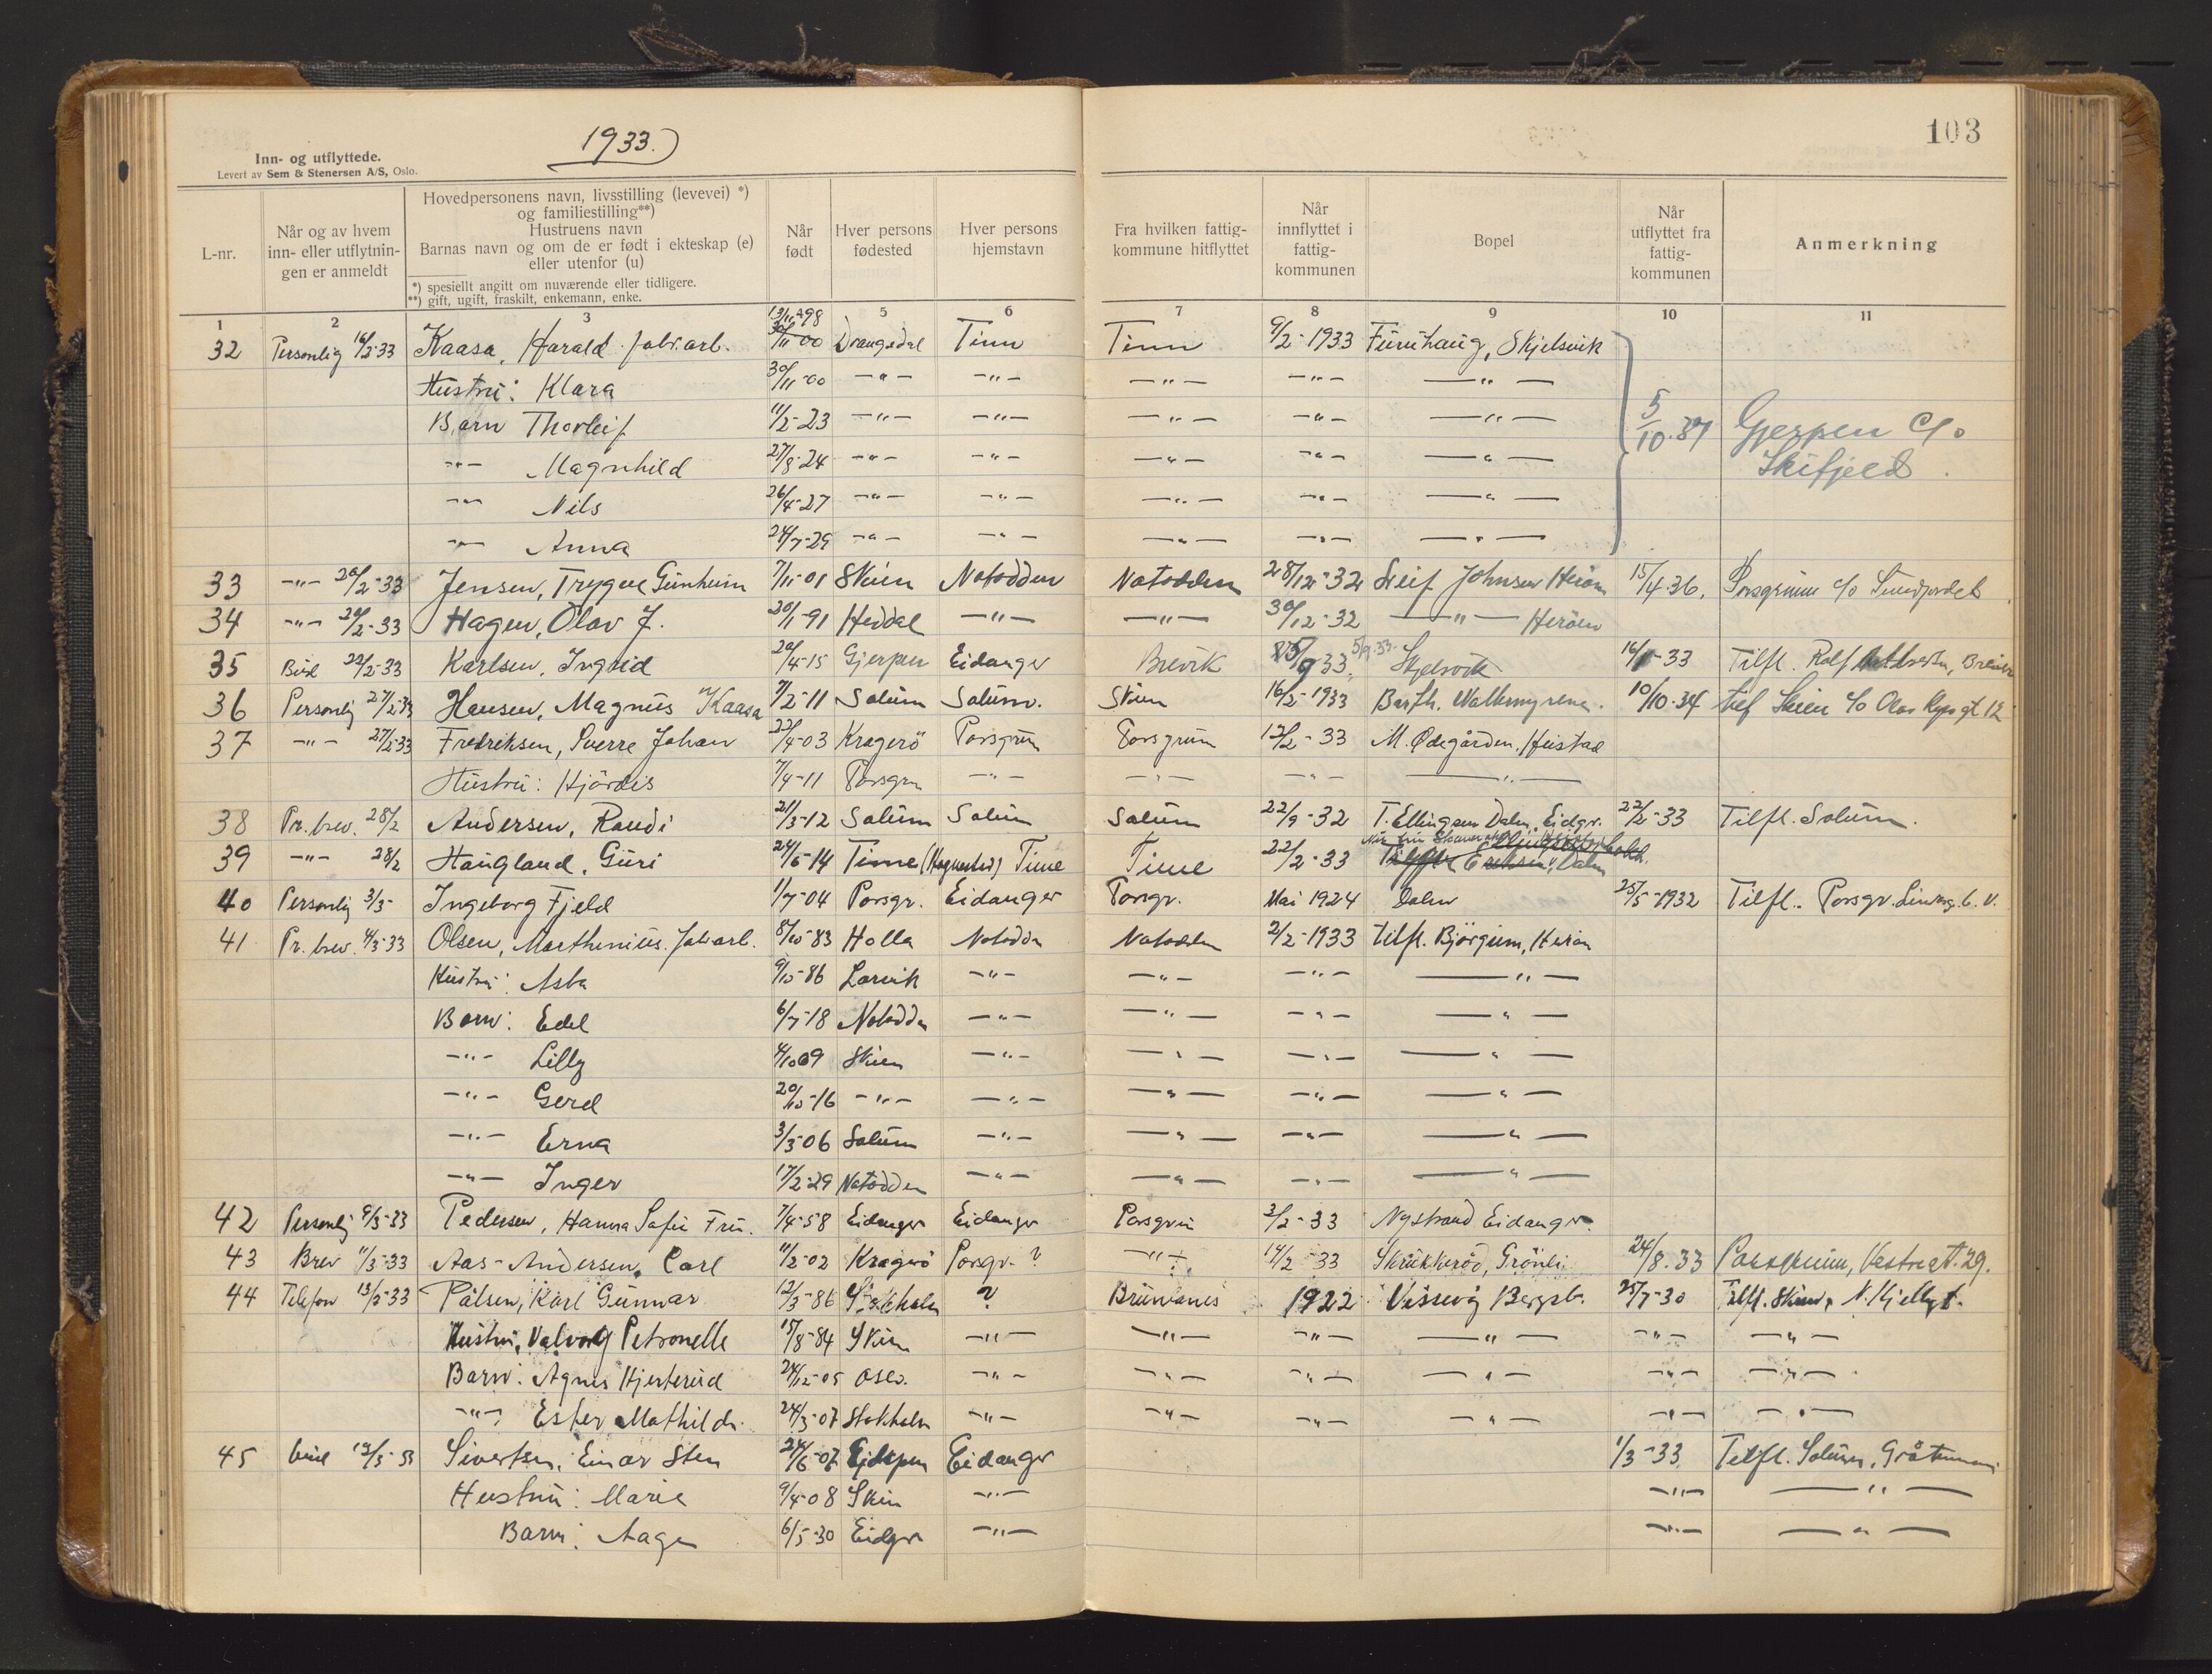 1933.
103
Inn- og utflyttede.
Levert av Sem & Stenersen A/S, Oslo.
L-nr.
Når og av hvem inn- eller utflytnin- gen er anmeldt
Hovedpersonens navn, livsstilling (levevei) *)
og familiestilling**)
Hustruens navn
Barnas navn og om de er født i ekteskap (e)
eller utenfor (u)
*) spesiellt angitt om nuværende eller tidligere.
**) gift, ugift, fraskilt, enkemann, enke.
Når født
Hver persons fødested
Hver persons hjemstavn
Fra hvilken fattig- kommune hitflyttet
Når innflyttet i fattig- kommunen
Bopel
Når utflyttet fra fattig- kommunen
Anmerkning
1 2 3 5 6 7 8 9 10 11
13/11-98
32 Personlig 16/2-33 Kaasa, Harald fabr.arb. 30/11-00 Drangedal Tinn Tinn 9/2-1933 Furuhaug, Skjelsvik
Hustru: Klara 30/11-00 -"- -"- -"- -"- -"-
Barn Thorleif 11/2-23 -"- -"- -"- -"- -"- 5/10.37 Gjerpen c/o
-"- Magnhild 27/8-24 -"- -"- -"- -"- -"- Skifjeld.
-"- Nils 26/4-27 -"- -"- -"- -"- -"-
-"- Anna 24/7-29 -"- -"- -"- -"- -"-
33 -"- 20/2-33 Jensen, Trygve Gunheim 7/11-01 Skien Notodden Notodden 28/12-32 Leif Johnsen Herøen 15/4.36. Porsgrunn c/o
34 -"- 20/2-33 Hagen, Olav J. 20/1-91 Heddal -"- -"- 30/12-32 -"- Herøen
35 Bud 22/2-33 Karlsen, Ingrid 20/4-15 Gjerpen Eidanger Brevik 5/9.33. Skjelsvik -33 Tilfl. Rolf
36 Personlig 27/2-33 Hansen, Magnus v/Kaasa 7/2-11 Solum Solum. Skien 16/2-1933 Barth. Walkmyrene. 10/10.34 tilf Skien c/o Olav Ryes gt 12
37 -"- 27/2-33 Fredriksen, Sverre Johan 22/4-03 Kragerö Porsgrun Porsgrunn 12/2-33 M. Ødegården, Heistad
Hustru: Hjördis 7/4-11 Porsgrn -"- -"- -"- -"-
38 Pr. brev. 28/2 Andersen, Randi 21/3-12 Solum Solum Solum 22/9-32 T. Ellingsen Dalen, Eidgr. 22/2-33 Tilfl. Solum.
39 -"- 28/2 Haugland, Guri 24/6-14 Time Time Time 22/2-33
40 Personlig 3/3- Ingeborg Fjeld 1/7-04 Porsgr. Eidanger Porsgr. Mai 1924 Dalen 25/5-1932 Tilfl. Porsgr.
41 Pr. brev. 4/3-33 Olsen, Marthinius. fabr.arb. 8/10-83 Holla Notodden Notodden 2/2-1933 tilfl. Björgum, Herøen
Hustru: Asta 9/10-86 Larvik -"- -"- -"- -"-
Barn: Edel 6/7-18 Notodden -"- -"- -"- -"-
-"- Lilly 4/10 09 Skien -"- -"- -"- -"-
-"- Gerd 20/10-16 -"- -"- -"- -"- -"-
-"- Erna 3/3-06 Solum -"- -"- -"- -"-
-"- Inger 17/2-29 Notodden -"- -"- -"- -"-
42 Personlig 9/3-33 Pedersen, Hanna Sofie Fru. 7/4-58 Eidanger Eidanger Porsgrun 3/2-33 Nystrand Eidanger.
43 Brev 11/3-33 Aas-Andersen, Carl 11/2-02 Kragerö Porsgr.? -"- 14/2-33 Skrukkerød, Grönli 24/8.33 Porsgrunn, Vestregt. 29.
44 Telefon 13/3-33 Pålsen, Karl Gunnar 12/3-86 Stokholm ? Brunlanes 1922 Versvig Bergsb. 25/7-30 Tilfl. Skien,
Hustru, Valborg Petronelle 15/8-84 Skien -"- -"- -"- -"- -"- -"-
Barn: Agnes Hjerterud 24/12-05 Oslo. -"- -"- -"- -"- -"- -"-
-"- Ester Mathilde. 24/3-07 Stokholm -"- -"- -"- -"- -"- -"-
45 bud 13/3-33 Sivertsen, Einar Sten 24/6-07 Gjerpen Eidanger 1/3-33 Tilfl. Solum,
Hustru: Marie 9/4-08 Skien -"- -"- -"-
Barn: Aage 6/5-30 Eidgr -"- -"- -"-